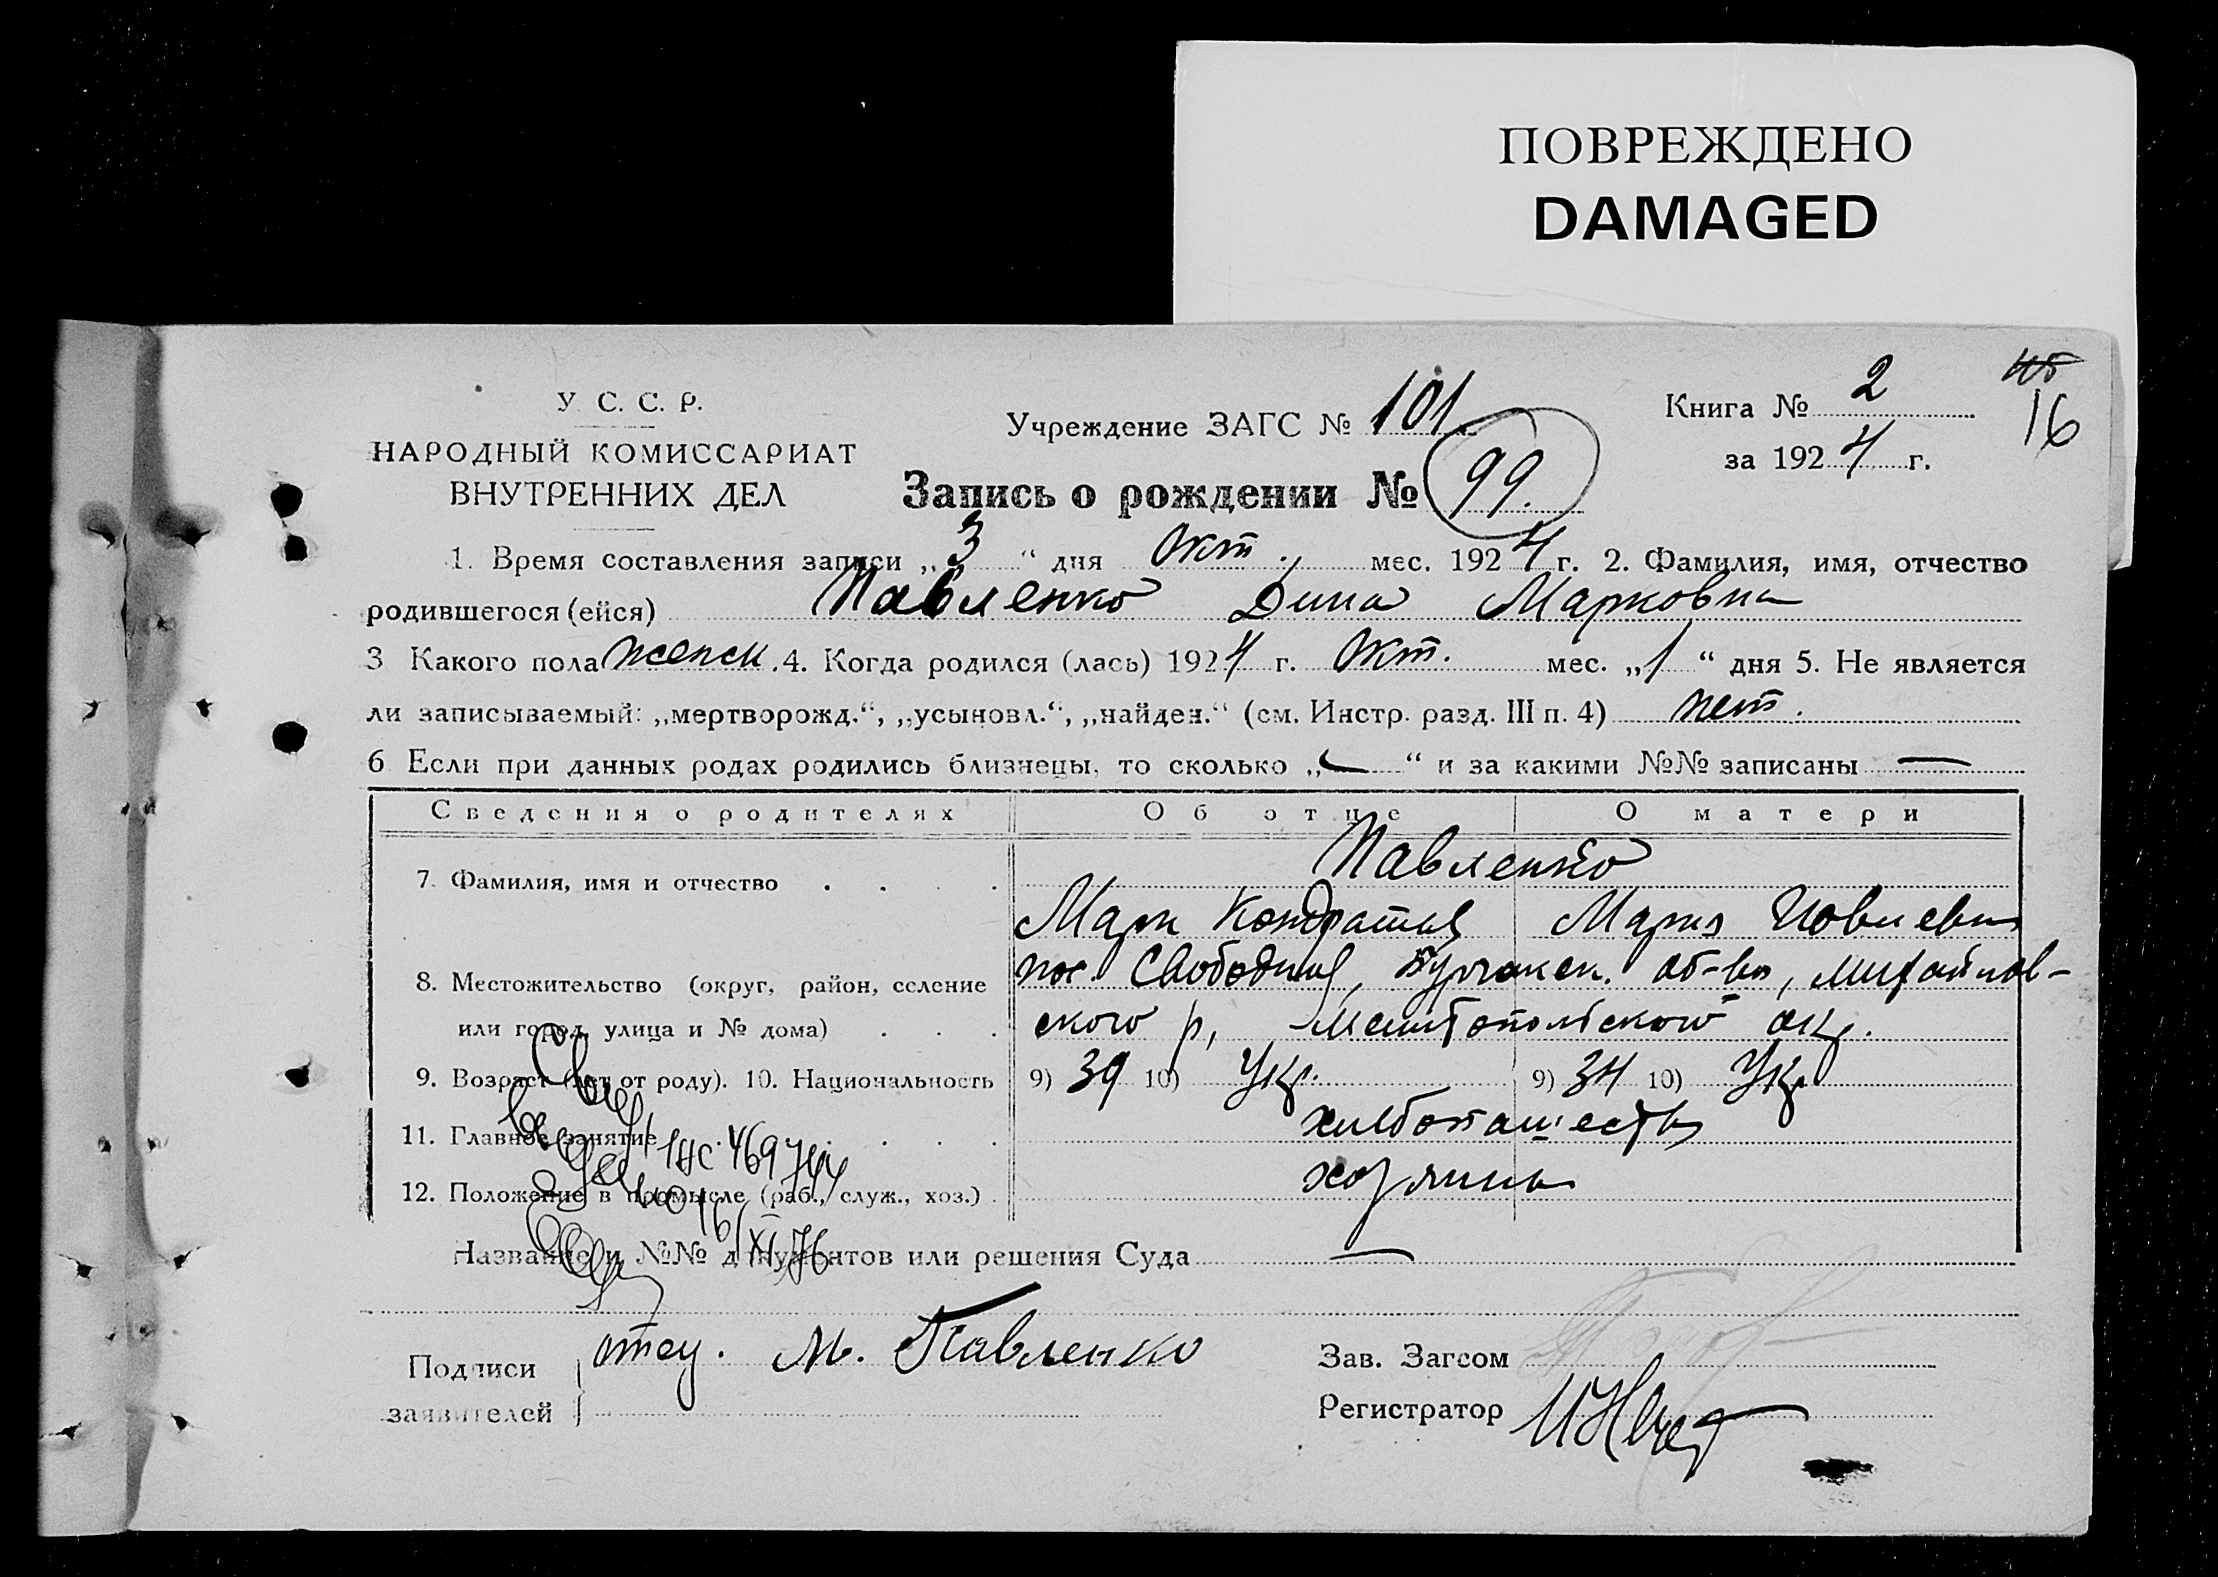 ПОВРЕЖДЕНО
DAMAGED
У. С. С. Р.
НАРОДНЫЙ КОМИССАРИАТ
ВНУТРЕННИХ ДЕЛ
Учреждение ЗАГС № 101
Книга № 2
16
за 1924 г.
Запись о рождении № 99.
1. Время составления записи „3“ дня Окт. мес. 1924 г. 2. Фамилия, имя, отчество
родившегося (ейся) Павленко Дина Марковна
3 Какого пола женск. 4. Когда родился (лась) 1924 г. Окт. мес. „1“ дня 5. Не является
ли записываемый: „мертворожд.“, „усыновл.“, „найден.“ (см. Инстр. разд. III п. 4) нет.
6 Если при данных родах родились близнецы, то сколько „—“ и за какими №№ записаны —
Сведения о родителях Об отце О матери
7. Фамилия, имя и отчество Павленко
Марк Кондратьев Мария
8. Местожительство (округ, район, селение пос. Свободный, об-ва, Михайлов-
или город, улица и № дома) ского р, Мелитопольского окр.
9. Возраст (лет от роду). 10. Национальность 9) 39 10) Укр. 9) 34 10) Укр
11. Главное занятие хлебопашество
12. Положение в промысле (раб., служ., хоз.)
Название и №№ документов или решения Суда —
Подписи отец. М. Павленко
заявителей
Зав. Загсом
Регистратор